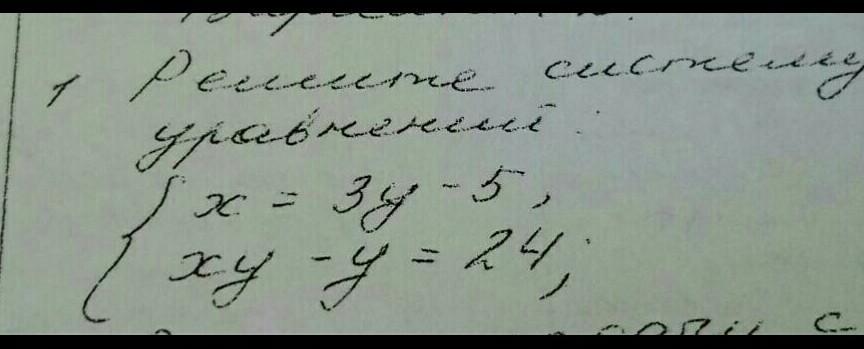 1 Решите систему
уравнений:
{ x = 3y - 5,
xy - y = 24;